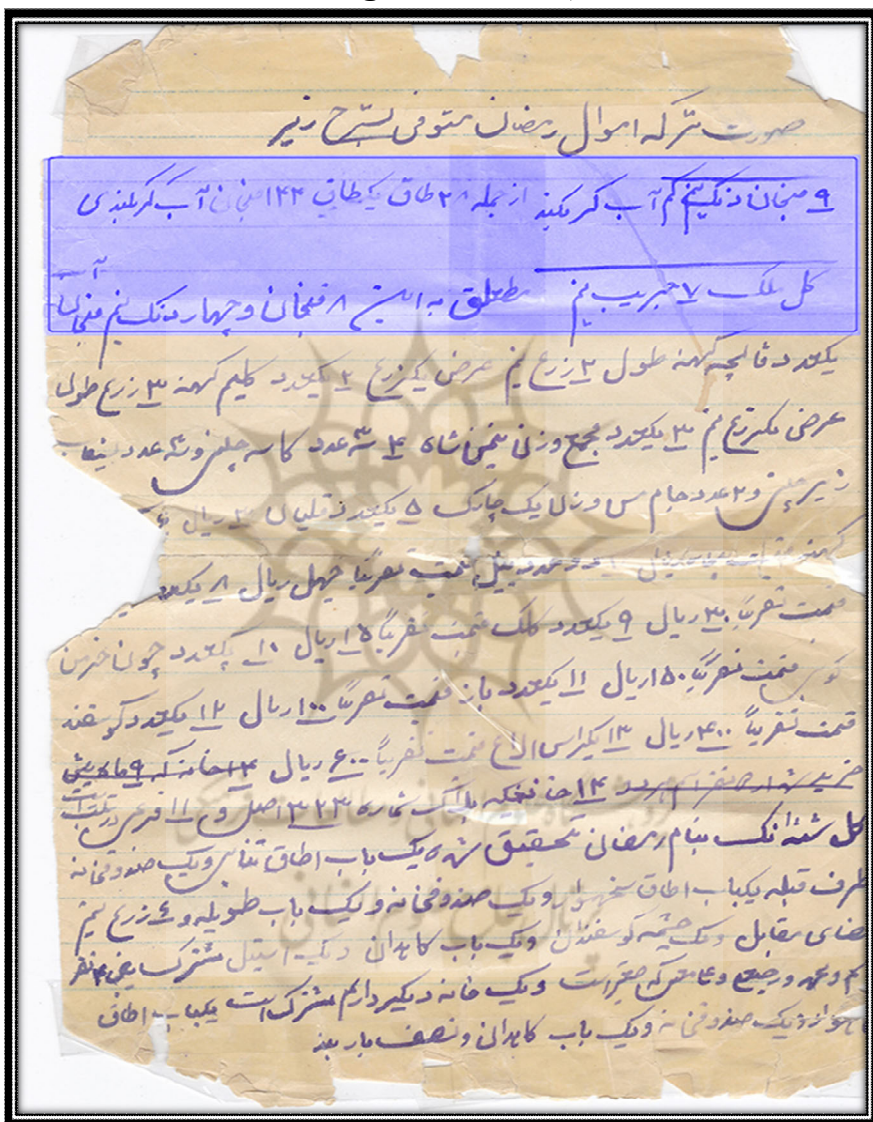 صورت ترکه اموال رمضان متوفی بشرح زیر
۹ فنجان دنگ نیم کم آب کربکند از جمله ۲۸ طاق یکطاق ۱۴۴ فنجان آب کربکندی
کل ملک ۷ جریب نیم مطلق به این ۸ فنجان و چهار دنگ نیم فنجان آب
یکعدد قالیچه کهنه طول ۲ زرع نیم عرض یکزرع ۲ یکعدد گلیم کهنه ۳ زرع طول
عرض یکزرع نیم ۳ یکعدد مجمع وزن نیمن شاه ۴ سه عدد کاسه چلنی و سه عدد بشقاب
زیر چلنی و ۲ عدد جام مس وزن یک چارک ۵ یکعدد قلیان ۳۰ ریال
کهنه قیمت دو عدد بیل قیمت تقریباً چهل ریال ۸ یکعدد
قیمت تقریباً ۳۰ ریال ۹ یکعدد کلک قیمت تقریباً ۱۵ ریال ۱۰ یکعدد چون خرمن
کوبی قیمت تقریباً ۱۵۰ ریال ۱۱ یکعدد باز قیمت تقریباً ۱۰۰ ریال ۱۲ یکعدد گوسفند
قیمت تقریباً ۴۰۰ ریال ۱۳ یکراس الاغ قیمت تقریباً ۶۰۰ ریال ۱۴ خانه که ۹ ماه پیش
۱۴ خانه پلاک شماره ۳۲۳ اصلی و ۱۱ فرعی در ثبت است
کل ششدانگ بنام رمضانی تحقیق شده یک باب اطاق و یک صندوقخانه
طرف قبله یکباب اطاق و یک صندوقخانه و یک باب طویله و ۶ زرع نیم
فضای مقابل و یک چشمه گوسفندان و یک باب کاهدان و یک مشترک
که صغیر است و یک خانه دیگر دارم مشترک است یکباب اطاق
و یک صندوقخانه و یک باب کاهدان و نصف باربند